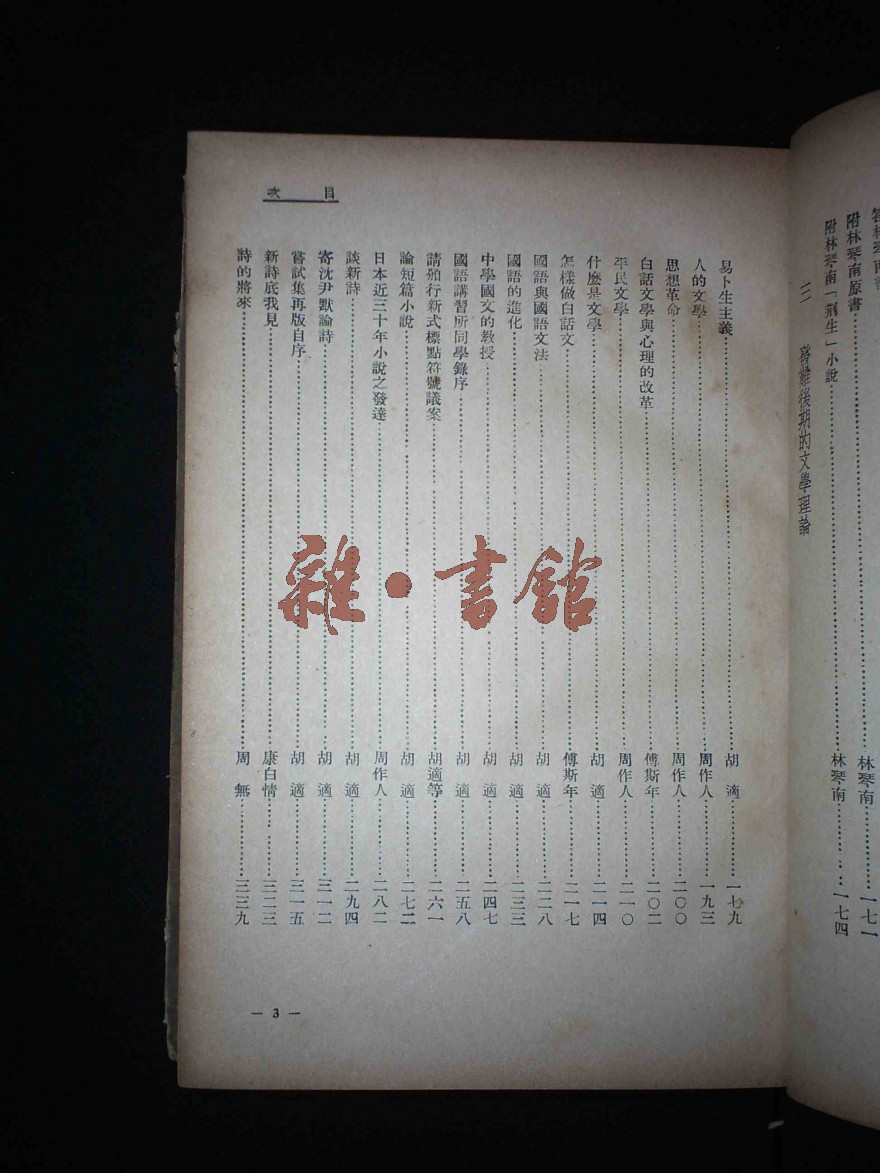 附林琴南原書……林琴南……一七一
附林琴南「荆生」小說……林琴南……一七四
三 發難後期的文學理論
目次
易卜生主義……胡適……一七九
人的文學……周作人……一九三
思想革命……周作人……二〇〇
白話文學與心理的改革……傅斯年……二〇二
平民文學……周作人……二一〇
什麼是文學……胡適……二一四
怎樣做白話文……傅斯年……二一七
國語與國語文法……胡適……二二八
國語的進化……胡適……二三三
中學國文的教授……胡適……二四七
國語講習所同學錄序……胡適……二五八
請頒行新式標點符號議案……胡適等……二六一
論短篇小說……胡適……二七二
日本近三十年小說之發達……周作人……二八二
談新詩……胡適……二九四
寄沈尹默論詩……胡適……三一二
嘗試集再版自序……胡適……三一五
新詩底我見……康白情……三二三
詩的將來……周無……三三九
— 3 —
雜·書館